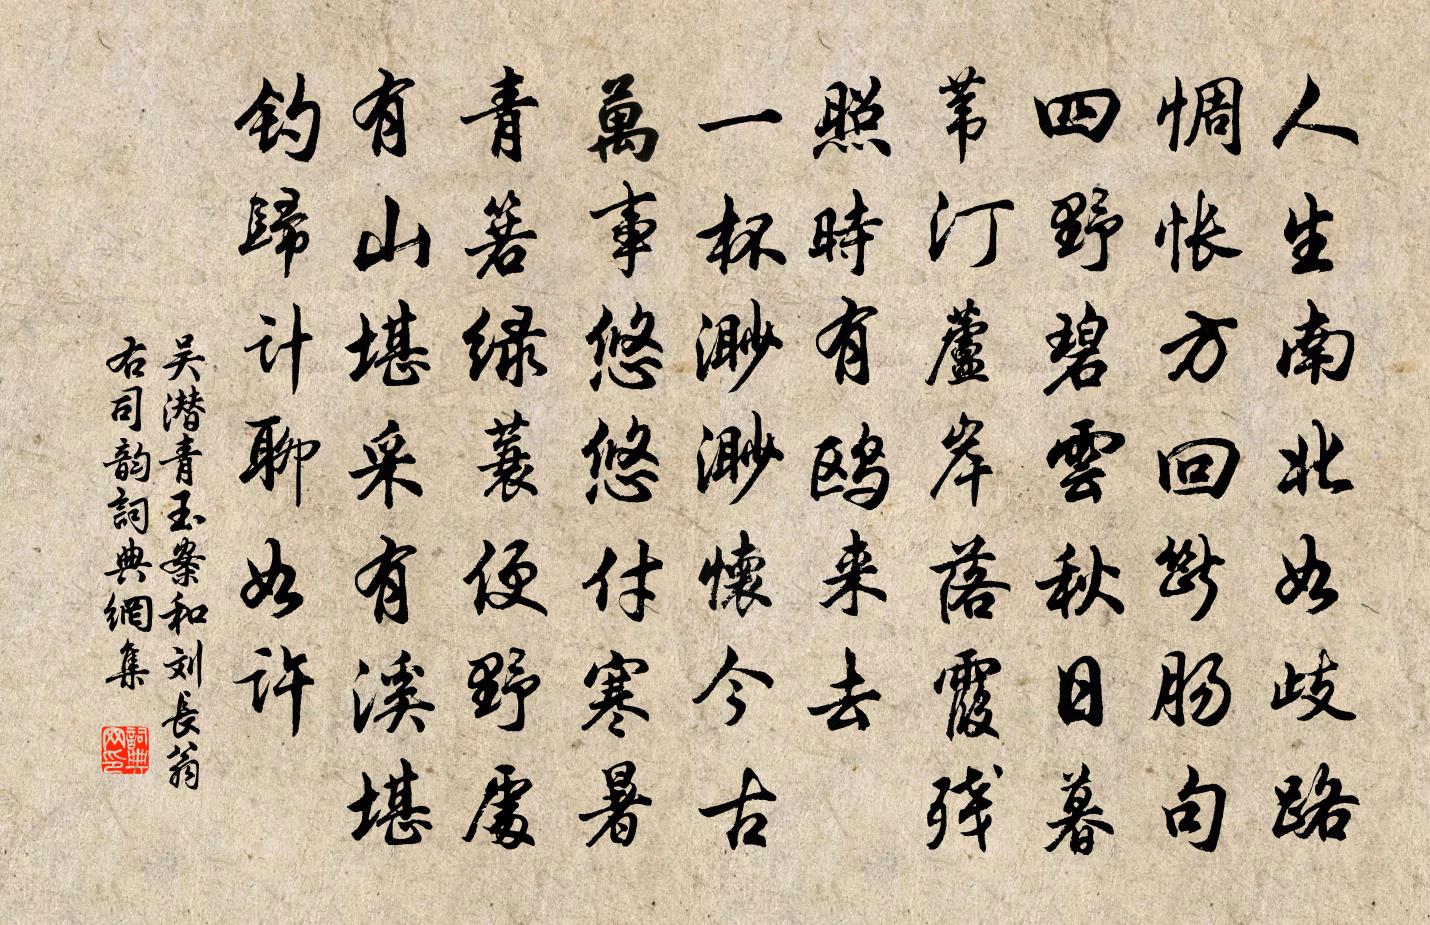 人生南北如歧路
惆怅方回断肠句
四野碧雲秋日暮
苇汀蘆岸落霞残
照時有鸥来去
一杯渺渺懷今古
萬事悠悠付寒暑
青箬绿蓑便野處
有山堪采有溪堪
钓歸计聊如许
吴潜青玉案和刘長翁
右司韵詞典網集
詞典
网印